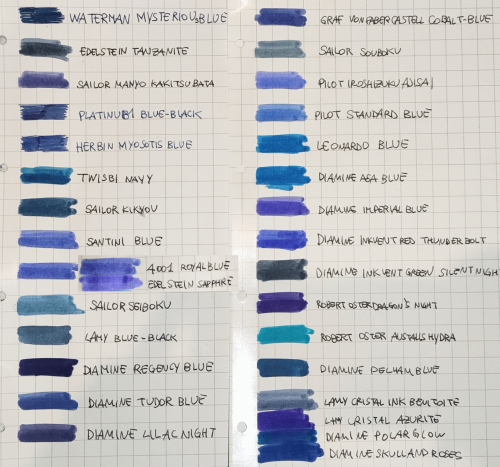 WATERMAN MYSTERIOUS BLUE
EDELSTEIN TANZANITE
SAILOR MANYO KAKITSUBATA
PLATINUM BLUE-BLACK
HERBIN MYOSOTIS BLUE
TWISBI NAVY
SAILOR KIKYOU
SANTINI BLUE
4001 ROYAL BLUE
EDELSTEIN SAPPHIRE
SAILOR SEIBOKU
LAMY BLUE-BLACK
DIAMINE REGENCY BLUE
DIAMINE TUDOR BLUE
DIAMINE LILAC NIGHT
GRAF VON FABER CASTELL COBALT-BLUE
SAILOR SOUBOKU
PILOT IROSHIZUKU AJISAI
PILOT STANDARD BLUE
LEONARDO BLUE
DIAMINE ASA BLUE
DIAMINE IMPERIAL BLUE
DIAMINE INKVENT RED THUNDERBOLT
DIAMINE INKVENT GREEN SILENT NIGHT
ROBERT OSTER DRAGON'S NIGHT
ROBERT OSTER AUSTALIS HYDRA
DIAMINE PELHAM BLUE
LAMY CRISTAL INK BENITOITE
LAMY CRISTAL AZURITE
DIAMINE POLAR GLOW
DIAMINE SKULL AND ROSES